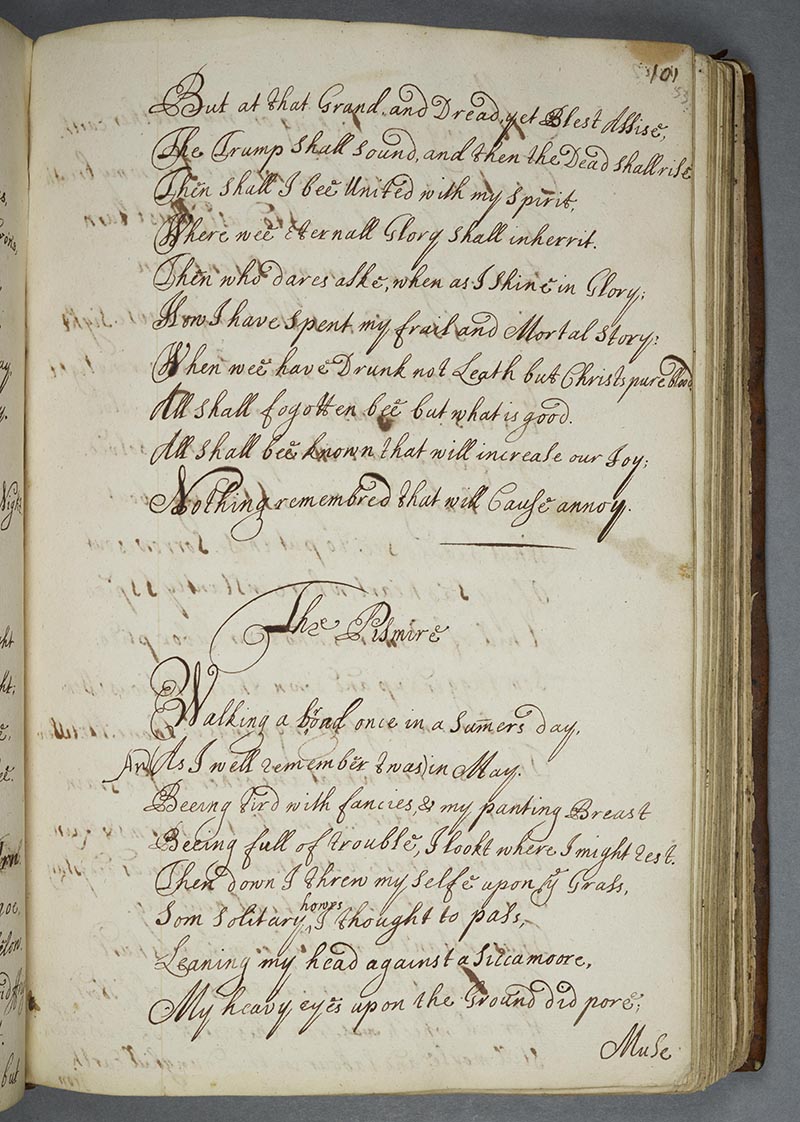 101
53
But at that Grand, and Dread, yet Blest Assise,
The Trump shall sound, and then the Dead shall rise
Then shall I bee United with my spirit,
Where wee eternall Glory shall inherrit.
Then who dares aske, when as I shine in Glory;
How I have spent my frail and Mortal story:
When wee have Drunk not Leath but Christs pure blood
All shall fogotten bee but what is good.
All shall bee known that will increase our Joy;
Nothing remembred that will Cause annoy.
The Pismire
Walking a broad once in a sum̄ers day,
And (As I well remember twas) in May.
Beeing tird with fancies, & my panting Breast
Beeing full of trouble, I lookt where I might rest.
Then down I threw my selfe upon yͤ Grass,
Som solitary howrs I thought to pass,
Leaning my head against a Siccamoore,
My heavy eyes upon the Ground did pore;
Muse